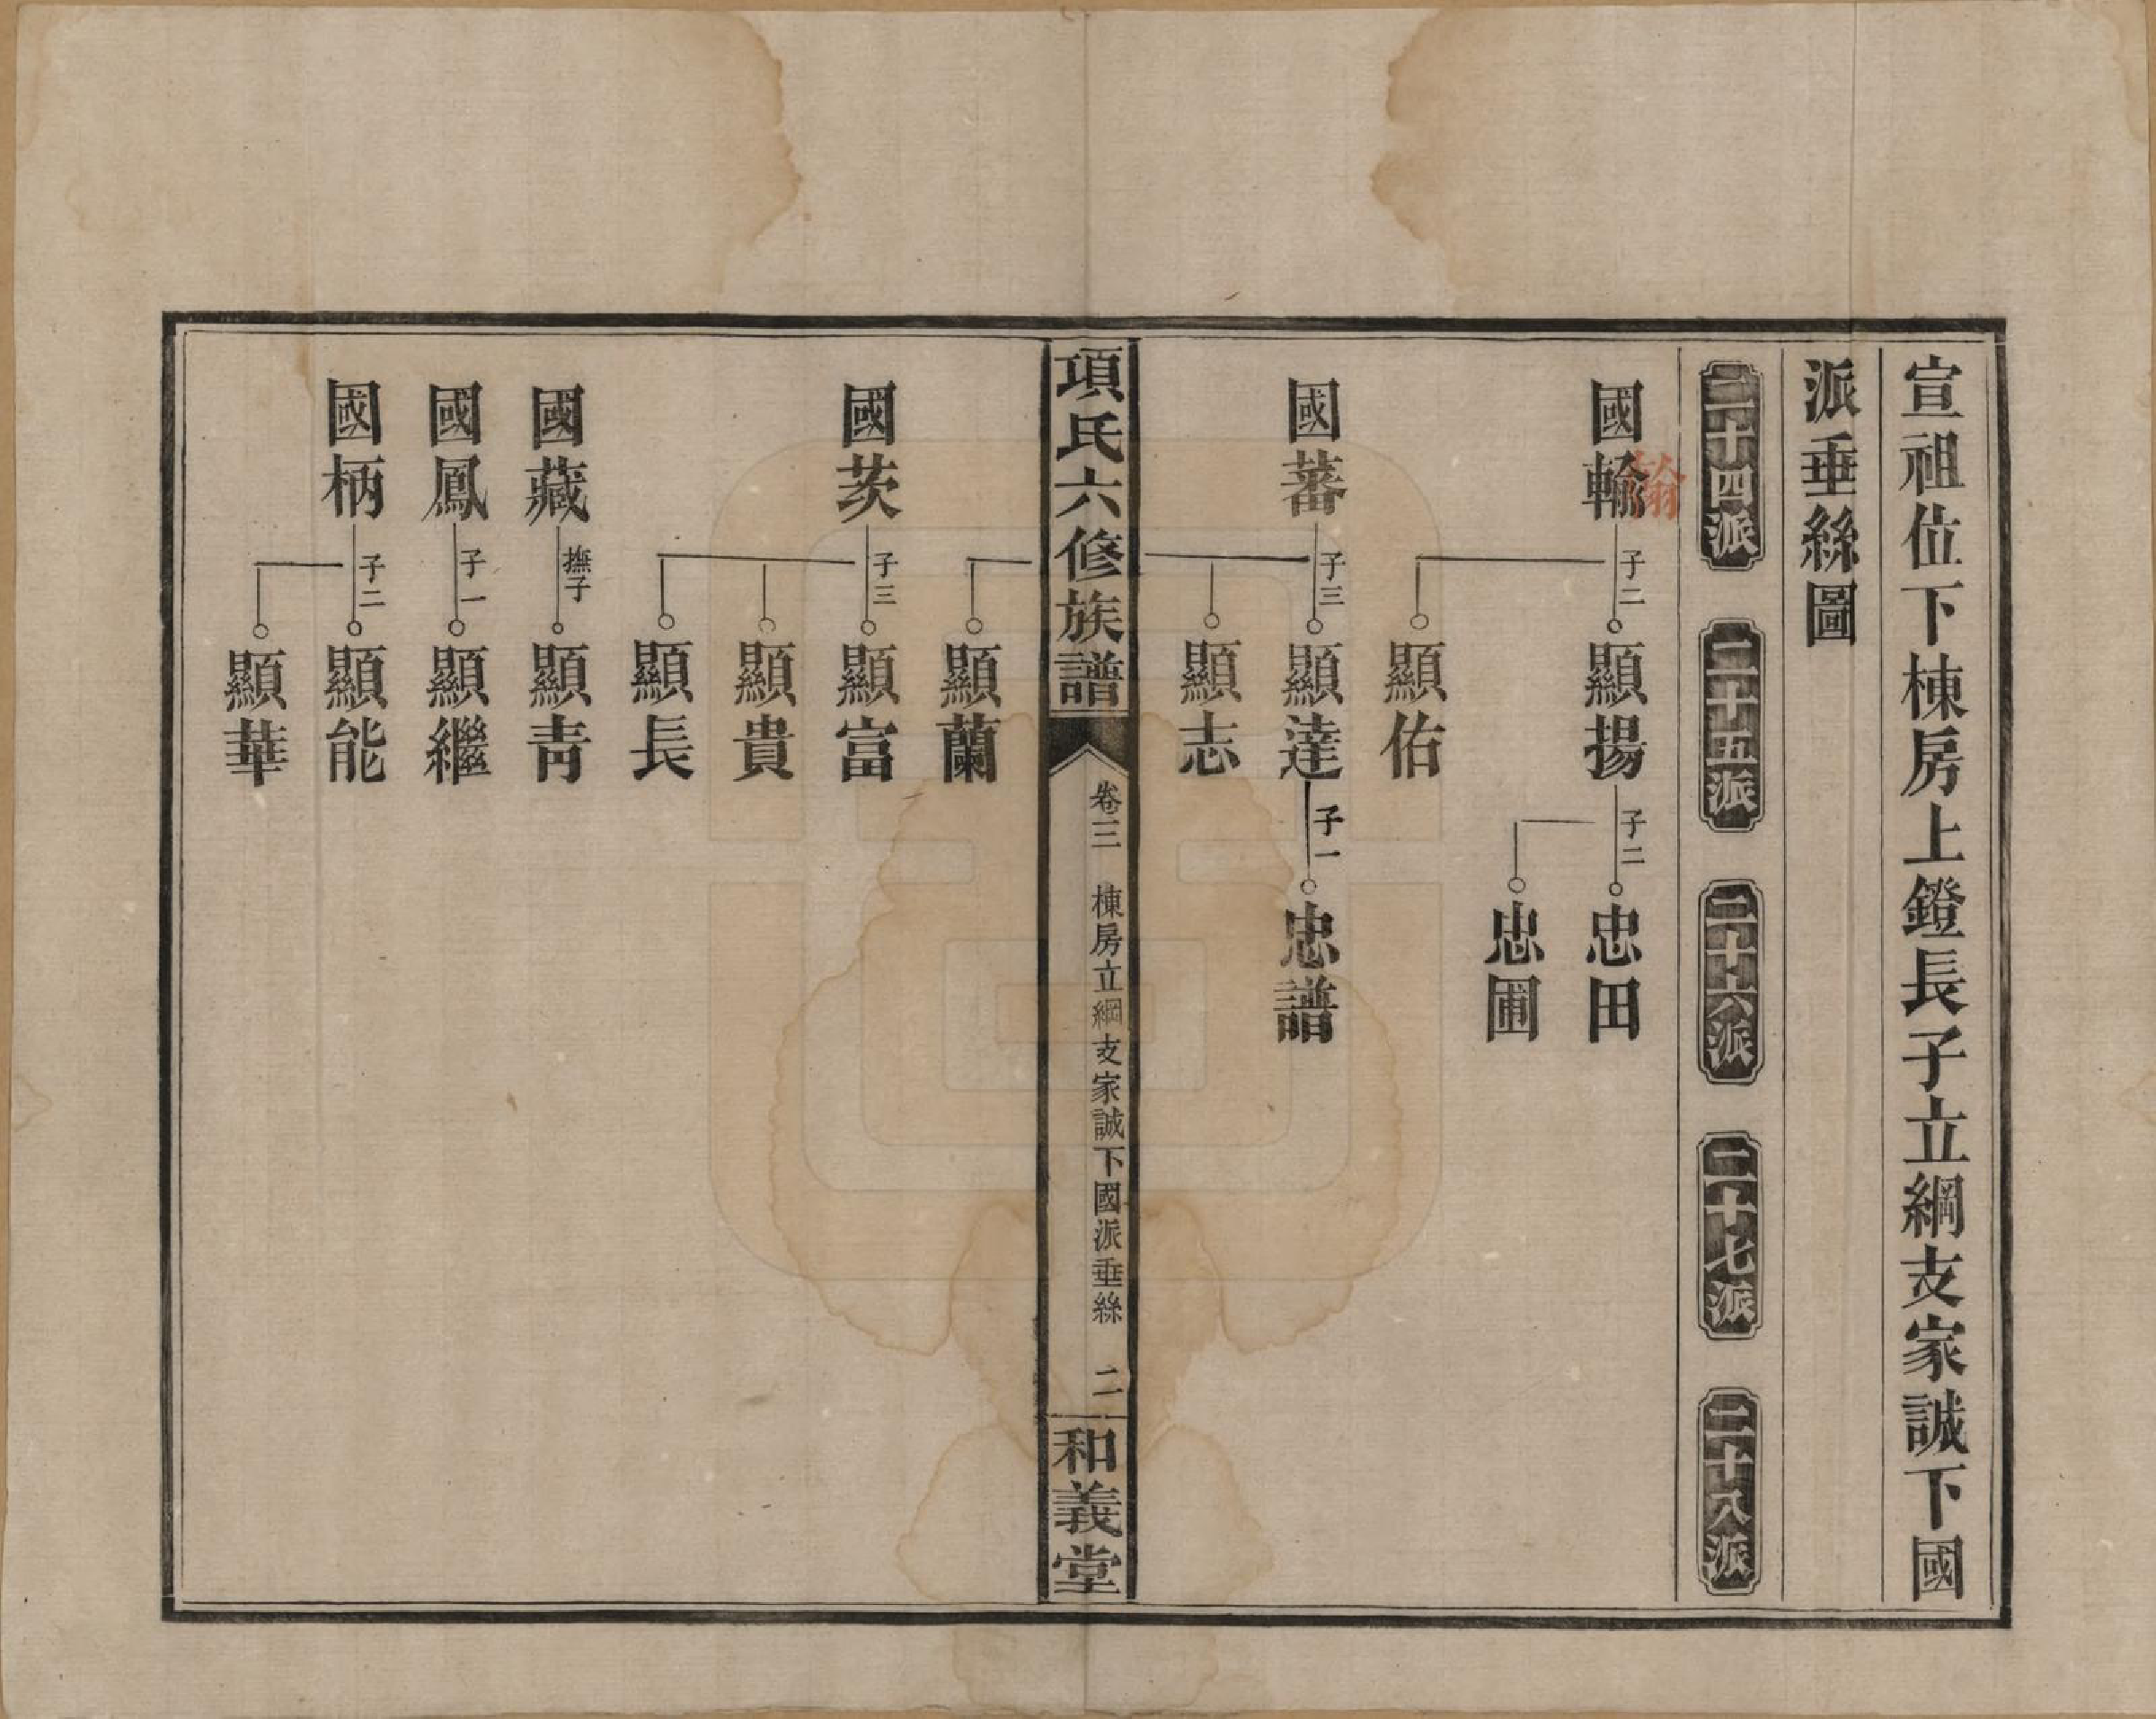 宣祖位下棟房上鐙長子立綱支家誠下國
派垂絲圖
二十四派
二十五派
二十六派
二十七派
二十八派
國輸
翰
子二
顯揚
子二
忠田
忠圃
顯佑
國蕃
子三
顯達
子一
忠譜
顯志
項氏六修族譜
卷三
棟房立綱支家誠下國派垂絲
二
和義堂
顯蘭
國茨
子三
顯富
顯貴
顯長
國藏
撫子
顯青
國鳳
子一
顯繼
國柄
子二
顯能
顯華